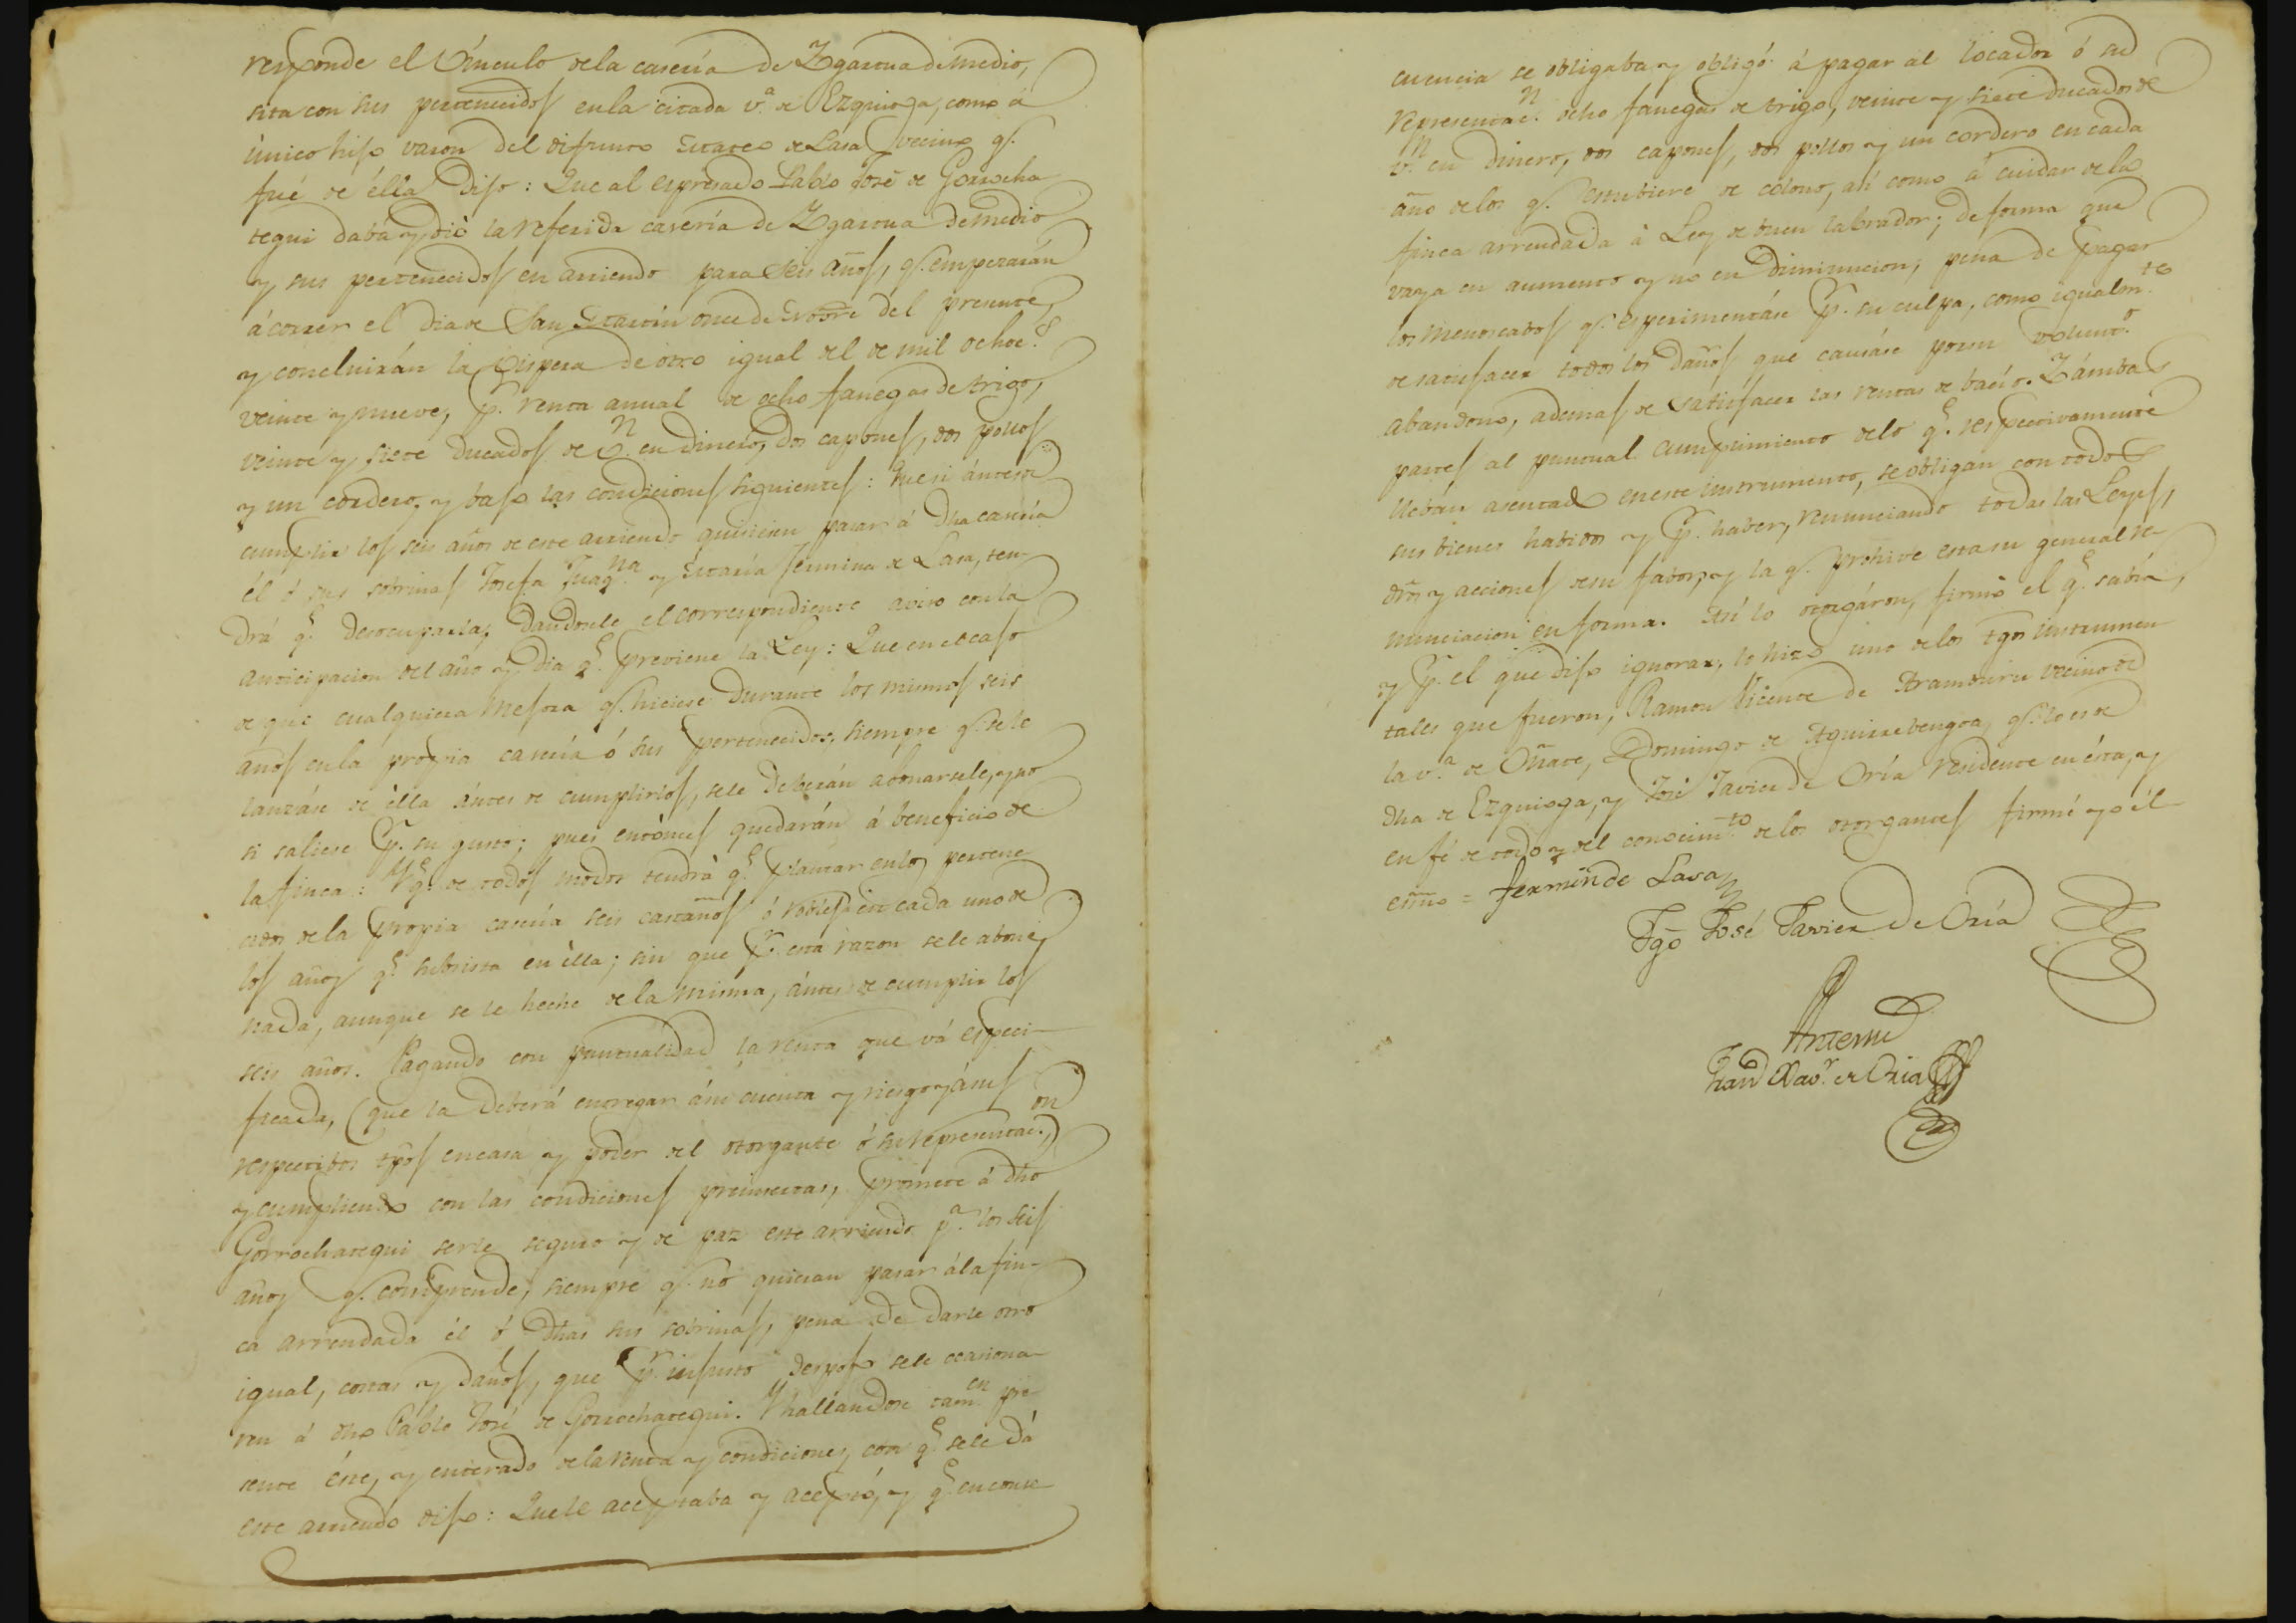 responde el Vínculo de la casería de Ygarzua de medio,
sita con sus pertenecidos en la citada v.ª de Ezquioga, como á
único hijo varon del difunto Mateo de Lasa vecino q.
fué de élla Dijo: Que al espresado Pablo José de Gorrocha-
tegui daba y dió la referida casería de Ygarzua de medio
y sus pertenecidos en arriendo para seis años, q. empezarán
á correr el dia de San Martin once de Novbre del presente,
y concluirán la vispera de otro igual del de mil ochoc.s
veinte y nueve, p.r renta anual de ocho fanegas de trigo,
veinte y siete Ducados de v.n en dinero, dos capones, dos pollos
y un cordero, y bajo las condiciones siguientes: Que si ántes de
cumplir los seis años de este arriendo quisieren pasar á dha casería
él ó sus sobrinas Josefa Juaq.na y María Fermina de Lasa, ten-
drá q.e desocuparla, dandosele el correspondiente aviso con la
anticipacion del año y dia q.e previene la Ley: Que en el caso
de que cualquiera mejora q. hiciese durante los mismos seis
años en la propia casería ó sus pertenecidos, siempre q. se le
lanzáse de élla ántes de cumplirlos, se le deberán abonarsele, y no
si saliese p.r su gusto; pues entónces quedarán á beneficio de
la finca: Y q.e de todos modos tendrá q.e plantar en los pertene-
cidos de la propia casería seis castaños ó robles en cada uno de
los años q.e subsista en élla; sin que p.r esta razon se le abone
nada, aunque se le heche de la misma, ántes de cumplir los
seis años. Pagando con puntualidad la renta que vá especi-
ficada, (que la deberá entregar á su cuenta y riesgo y á sus
respectibos tpos en casa y poder del otorgante ó su representac.on)
y cumpliendo con las condiciones preinsertas, promete á dho
Gorrochategui serle seguro y de paz este arriendo p.r los seis
años q. comprende, siempre q. no quieran pasar á la fin-
ca arrendada él ó dhas sus sobrinas, pena de darle otro
igual, costas y daños, que p.r injusto despojo se le ocasiona-
ren á dho Pablo José de Gorrochategui. Y hallandose tam.en pre-
sente éste, y enterado de la renta y condiciones con q.e se le dá
este arriendo dijo: Que le aceptaba y aceptó, y q.e en conse-
cuencia se obligaba y obligó á pagar al locador ó su
representac.n ocho fanegas de trigo, veinte y siete ducados de
v.n en dinero, dos capones, dos pollos y un cordero en cada
año de los q. estubiere de colono, así como á cuidar de la
finca arrendada á Ley de buen labrador; de forma que
vaya en aumento y no en diminucion; pena de pagar
los menoscabos q. esperimentáse p.r su culpa, como igualm.te
de satisfacer todos los daños que causáse por su volunt.o
abandono, ademas de satisfacer las rentas de bacío. Y ámbas
partes al puntual cumplimiento de lo q.e respectivamente
lleban asentado en este instrumento, se obligan con todos
sus bienes habidos y p.r haber, renunciando todas las Leyes,
dros y acciones de su fabor, y la q. prohive esta su general re-
nunciacion en forma. Así lo otorgáron, firmó el q.e sabía,
y p.r el que dijo ignorar, lo hizo uno de los tgos instrumen-
tales que fueron, Ramon Vicente de Aramburu vecino de
la v.ª de Oñate, Domingo de Aguirrebengoa, q. lo es de
dha de Ezquioga, y José Javier de Oría residente en ésta, y
en fé de todo y del conocim.to de los otorgantes firmé yo él
essno = Fermin de Lasa
Tgo José Javier de Oría
Antemi
Fran.co Xav.r de Oria